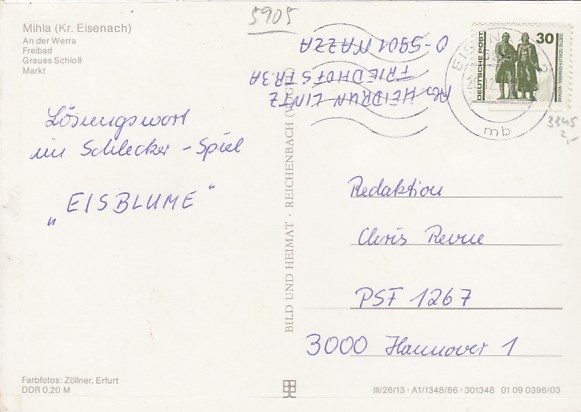 5905
Mihla (Kr. Eisenach)
An der Werra
Freibad
Graues Schloß
Markt
Lösungswort
im Schlecker-Spiel
„EISBLUME"
Abs. HEIDRUN LINTZ
FRIEDHOFSTR. 3A
O-5901 NAZZA
DEUTSCHE POST
30
EISEN
mb
3345
2,-
BILD UND HEIMAT · REICHENBACH
Redaktion
Chris Revue
PSF 1267
3000 Hannover 1
Farbfotos: Zöllner, Erfurt
DDR 0,20 M
III/26/13 · A1/1348/86 · 301348 01 09 0396/03